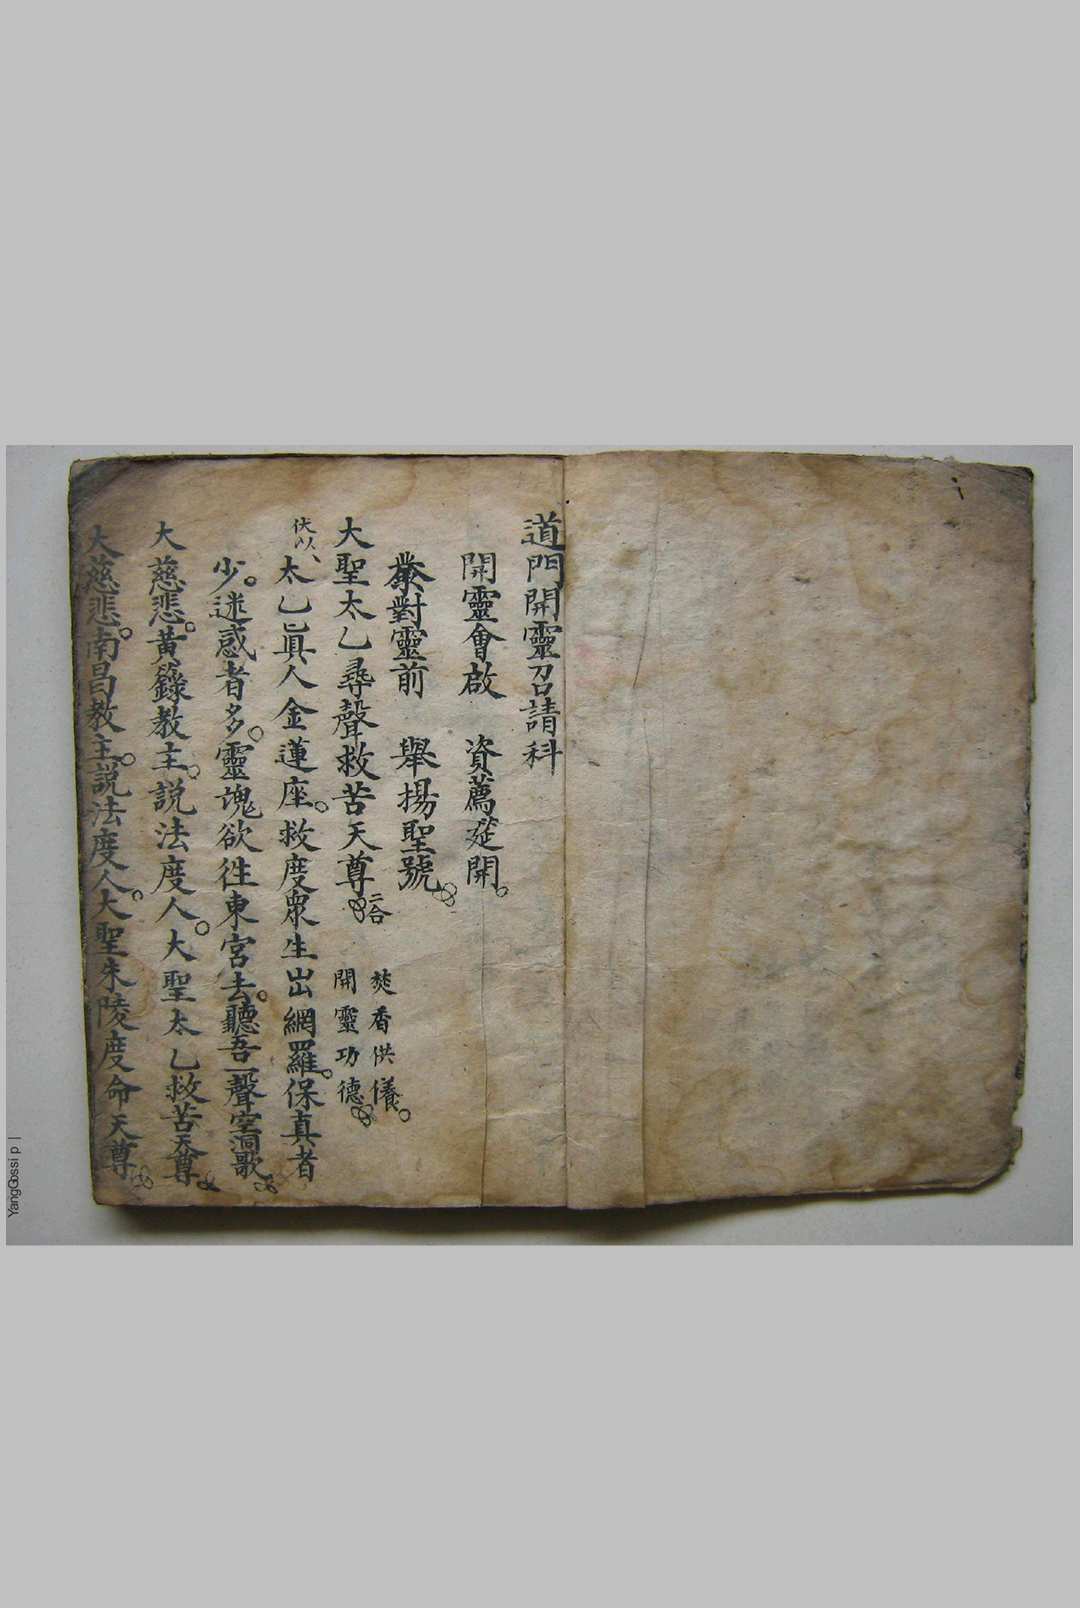 道門開靈召請科
開靈會啟 資薦筵開
眾對靈前 舉揚聖號
大聖太乙尋聲救苦天尊 二合
焚香供儀
開靈功德
伏以
太乙真人金蓮座救度眾生出網羅保真者
少迷惑者多靈魂欲往東宮去聽吾一聲空洞歌
大慈悲黃籙教主説法度人大聖太乙救苦天尊
大慈悲南昌教主説法度人大聖朱陵度命天尊
YangGossip |